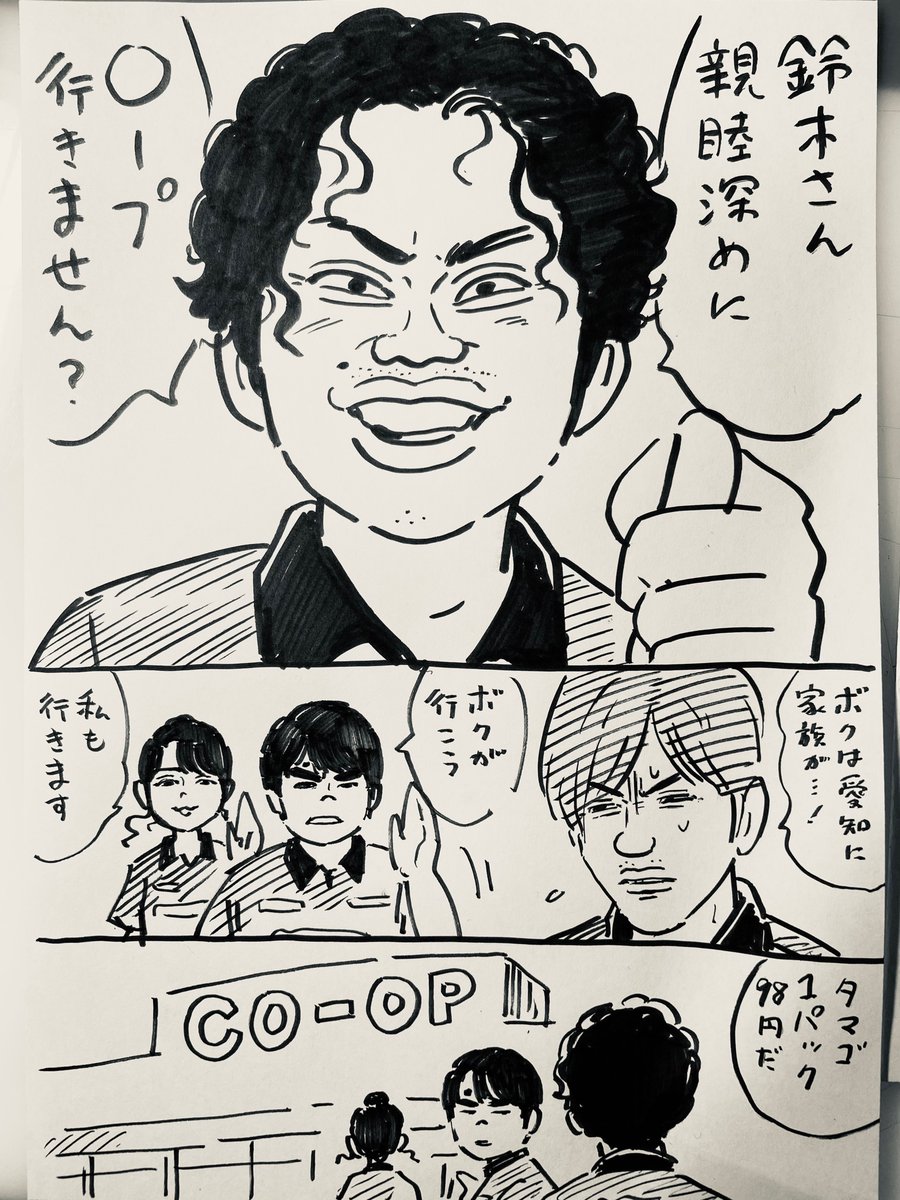 鈴木さん
親睦深めに
〇ープ
行きません?
ボクは愛知に
家族が…!
ボクが
行こう
私も
行きます
タマゴ
1パック
98円だ
CO-OP